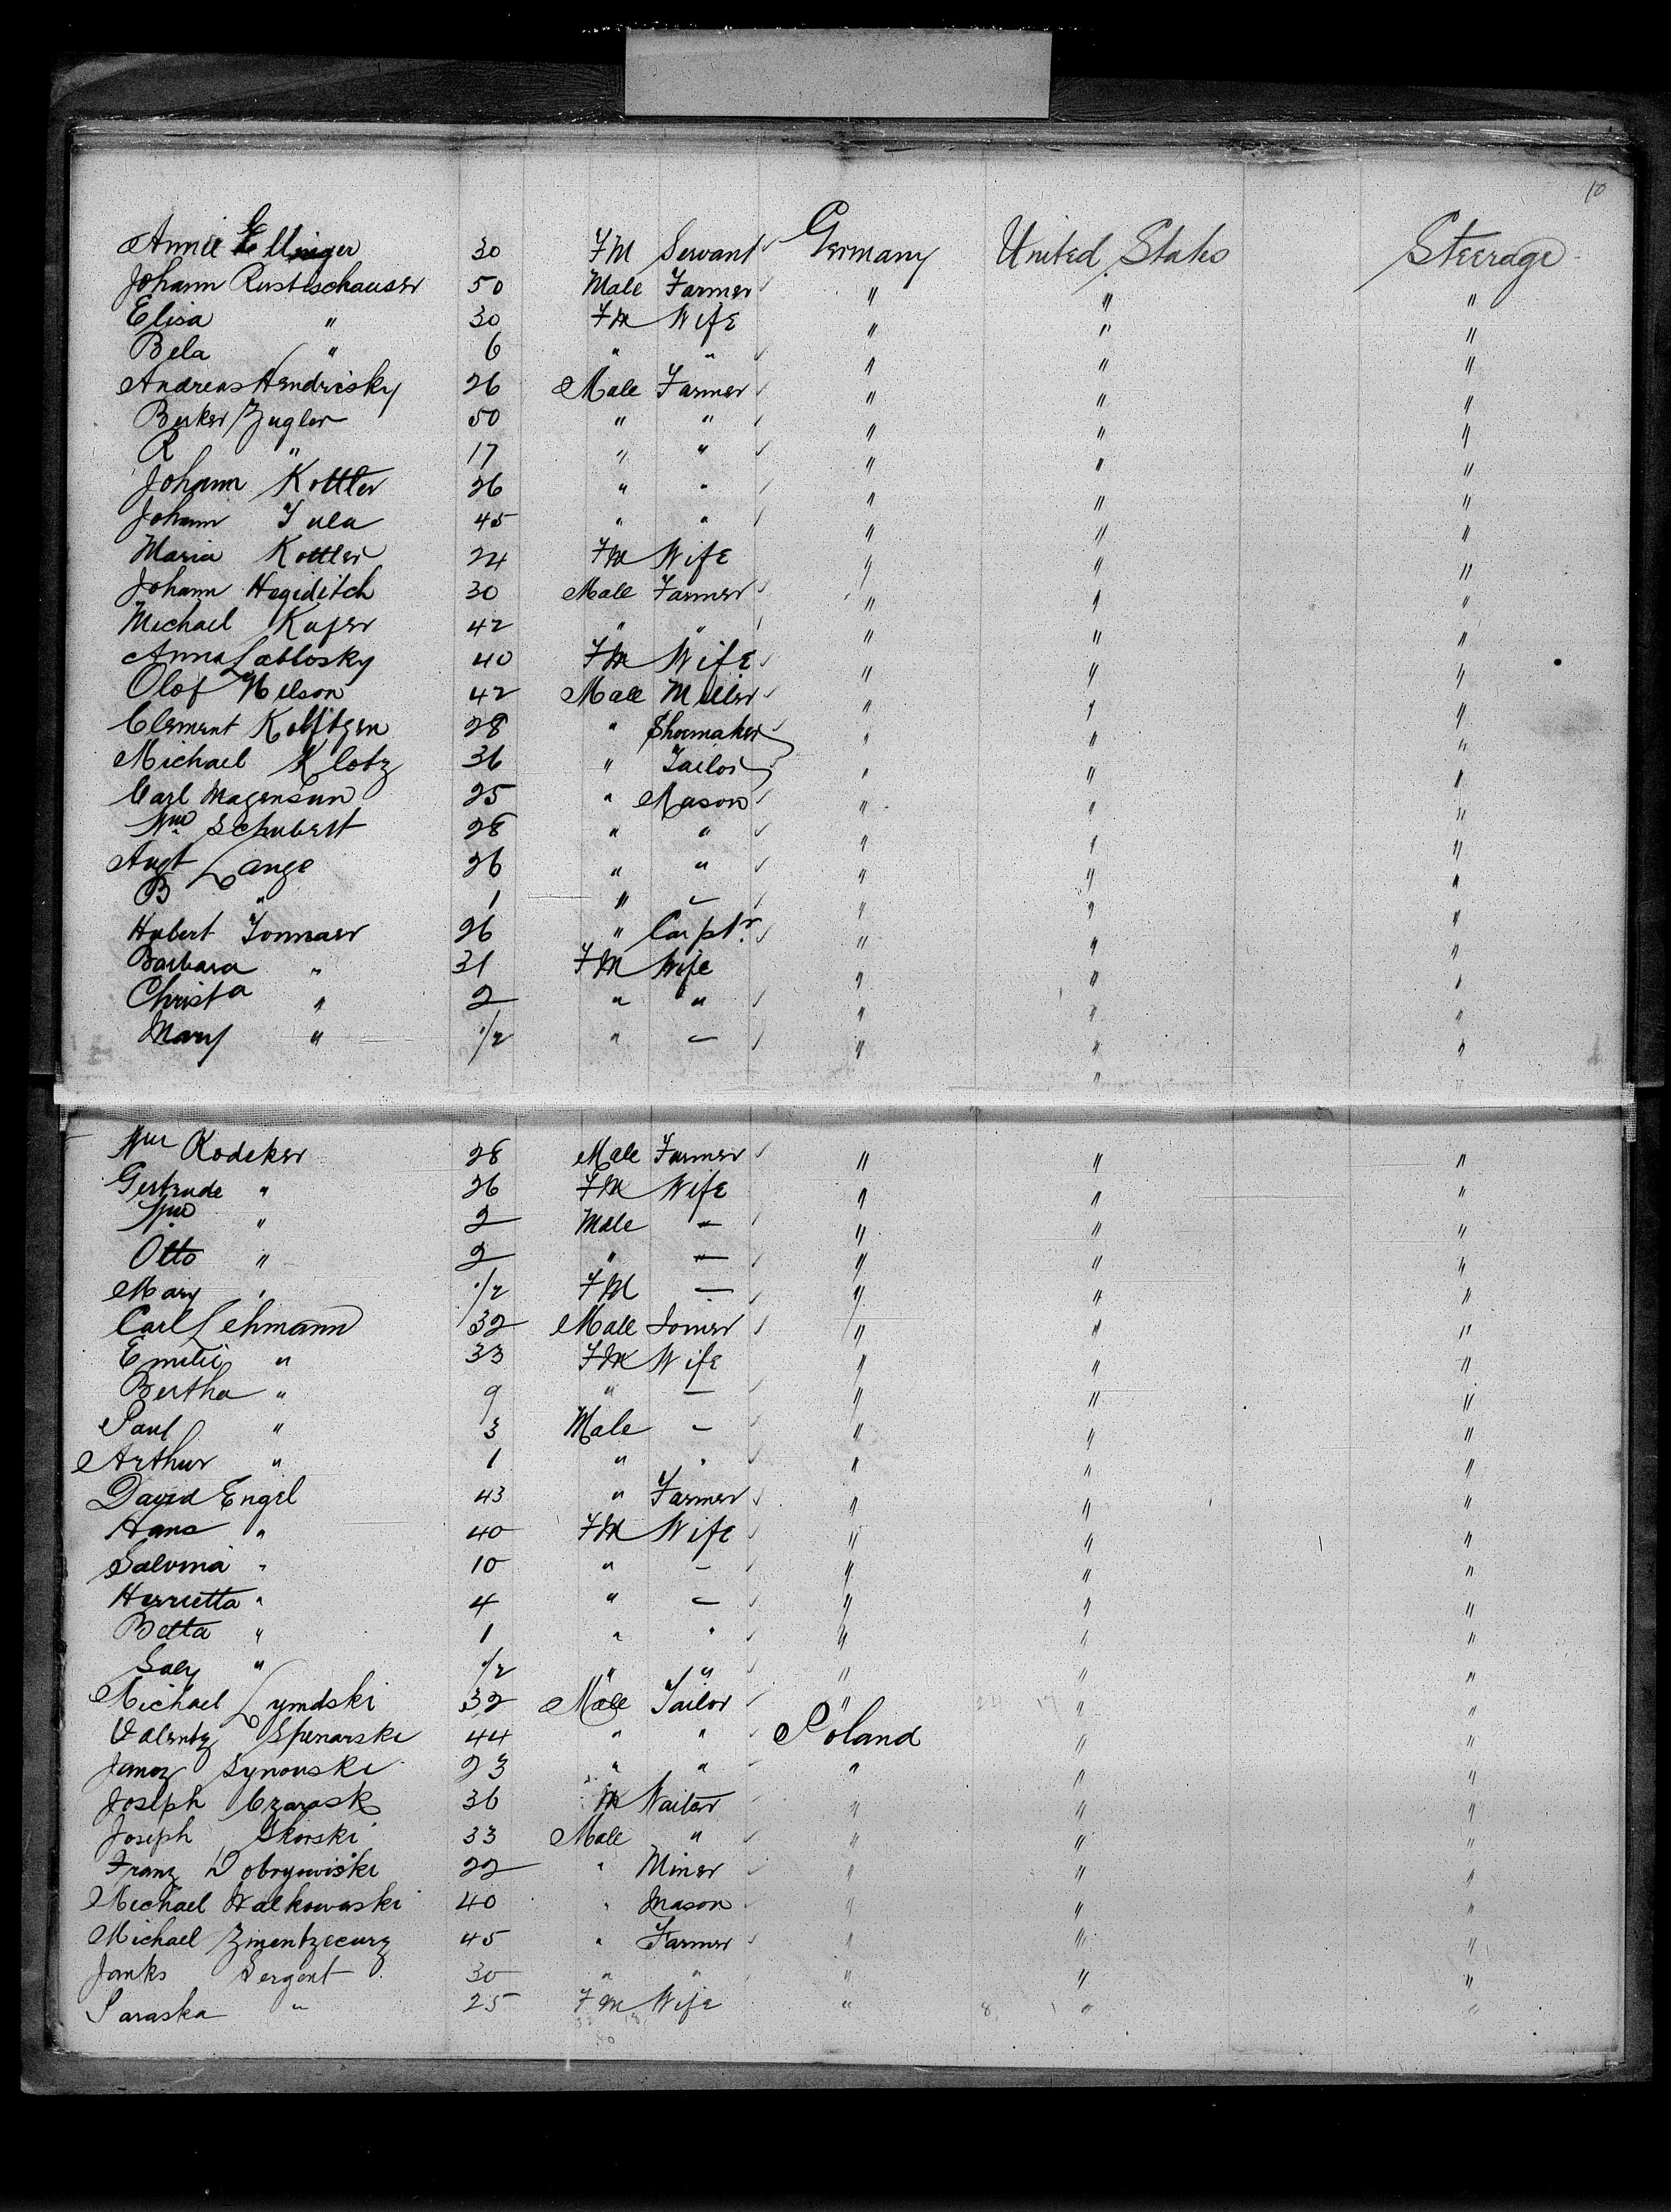 10
Annie Ellinger 30 FM Servant Germany United States Steerage
Johann Rustischauser 50 Male Farmer " " "
Elisa " 30 FM Wife " " "
Bela " 6 " " " " "
Andreas Hendrisky 26 Male Farmer " " "
Berker Zugler 50 " " " " "
R " 17 " " " " "
Johann Kottler 26 " " " " "
Johann 45 " " " " "
Maria Kottler 24 FM Wife " " "
Johann Hegiditch 30 Male Farmer " " "
Michael Kufer 42 " " " " "
Anna Lablosky 40 FM Wife " " "
Olof Nelson 42 Male Miller " " "
Clement 28 " Shoemaker " " "
Michael Klotz 36 " Tailor " " "
Carl Magensun 25 " Mason " " "
Wm Schubert 28 " " " " "
Augt Lange 26 " " " " "
B " 1 " – " " "
Hubert Tonnaer 26 " Carptr. " " "
Barbara " 31 FM Wife " " "
Christa " 2 " " " " "
Mary " 1/2 " – " " "
"
Wm Kodeker 28 Male Farmer " " "
Gertrude " 26 FM Wife " " "
Wm " 2 Male – " " "
Otto " 2 " – " " "
Mary " 1/2 FM – " " "
Carl Lehmann 32 Male Joiner " " "
Emilie " 33 FM Wife " " "
Bertha " 9 " – " " "
Paul " 3 Male – " " "
Arthur " 1 " " " " "
David Engel 43 " Farmer " " "
Hana " 40 FM Wife " " "
Salvina " 10 " – " " "
Herrietta " 4 " – " " "
Betta " 1 " " " " "
Saly " 1/2 " " " " "
Michael Lymdski 32 Male Tailor " " "
Valentz Spenarski 44 " " Poland " "
Janoz Synouski 23 " " " " "
Joseph Czarask 36 M Waiter " " "
Joseph Skorski 33 Male " " " "
Franz Dobryewiski 22 " Miner " " "
Michael Walkowaski 40 " Mason " " "
Michael Zmentzecurz 45 " Farmer " " "
Janks Sergent 30 " " " " "
Saraska " 25 FM Wife " " "